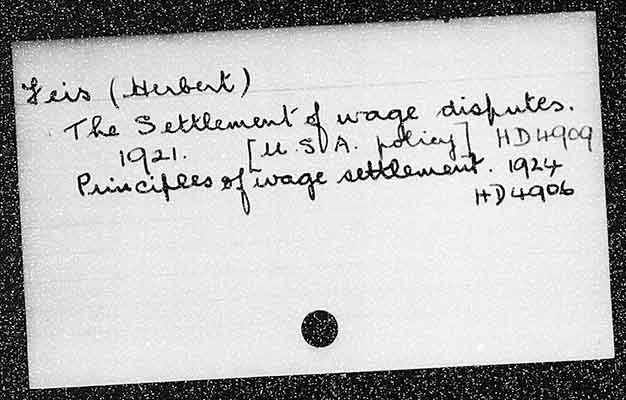 Feis (Herbert)
The Settlement of wage disputes.
1921. [U.S.A. policy] HD4909
Principles of wage settlement. 1924
HD4906